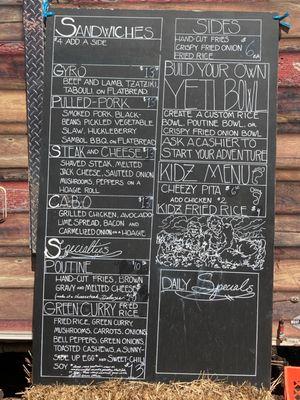 SANDWICHES
$4 ADD A SIDE
GYRO $13
BEEF AND LAMB, TZATZIKI
TABOULI, ON FLATBREAD
PULLED-PORK
SMOKED PORK, BLACK-
BEANS, PICKLED VEGETABLE
SLAW, HUCKLEBERRY
SAMBOL BBQ ON FLATBREAD
STEAK AND CHEESE $13
SHAVED STEAK, MELTED
JACK CHEESE, SAUTEED ONION
MUSHROOMS, PEPPERS ON A
HOAGIE ROLL
CABO $13
GRILLED CHICKEN, AVOCADO
LIME SPREAD, BACON AND
CARMELIZED ONION ON A HOAGIE
Specialties
POUTINE
HAND-CUT FRIES, BROWN
GRAVY AND MELTED CHEESE
GREEN CURRY FRIED
RICE
FRIED RICE, GREEN CURRY
MUSHROOMS, CARROTS, ONIONS
BELL PEPPERS, GREEN ONIONS
TOASTED CASHEWS, A SUNNY-
SIDE UP EGG AND SWEET-CHILI
SOY $13
SIDES
HAND-CUT FRIES
CRISPY FRIED ONION
FRIED RICE
6 ea
BUILD YOUR OWN
YETI BOWL
CREATE A CUSTOM RICE
BOWL, POUTINE BOWL, OR
CRISPY FRIED ONION BOWL
ASK A CASHIER TO
START YOUR ADVENTURE
KIDZ MENU
CHEEZY PITA $6
ADD CHICKEN $2
KIDZ FRIED RICE
DAILY Specials